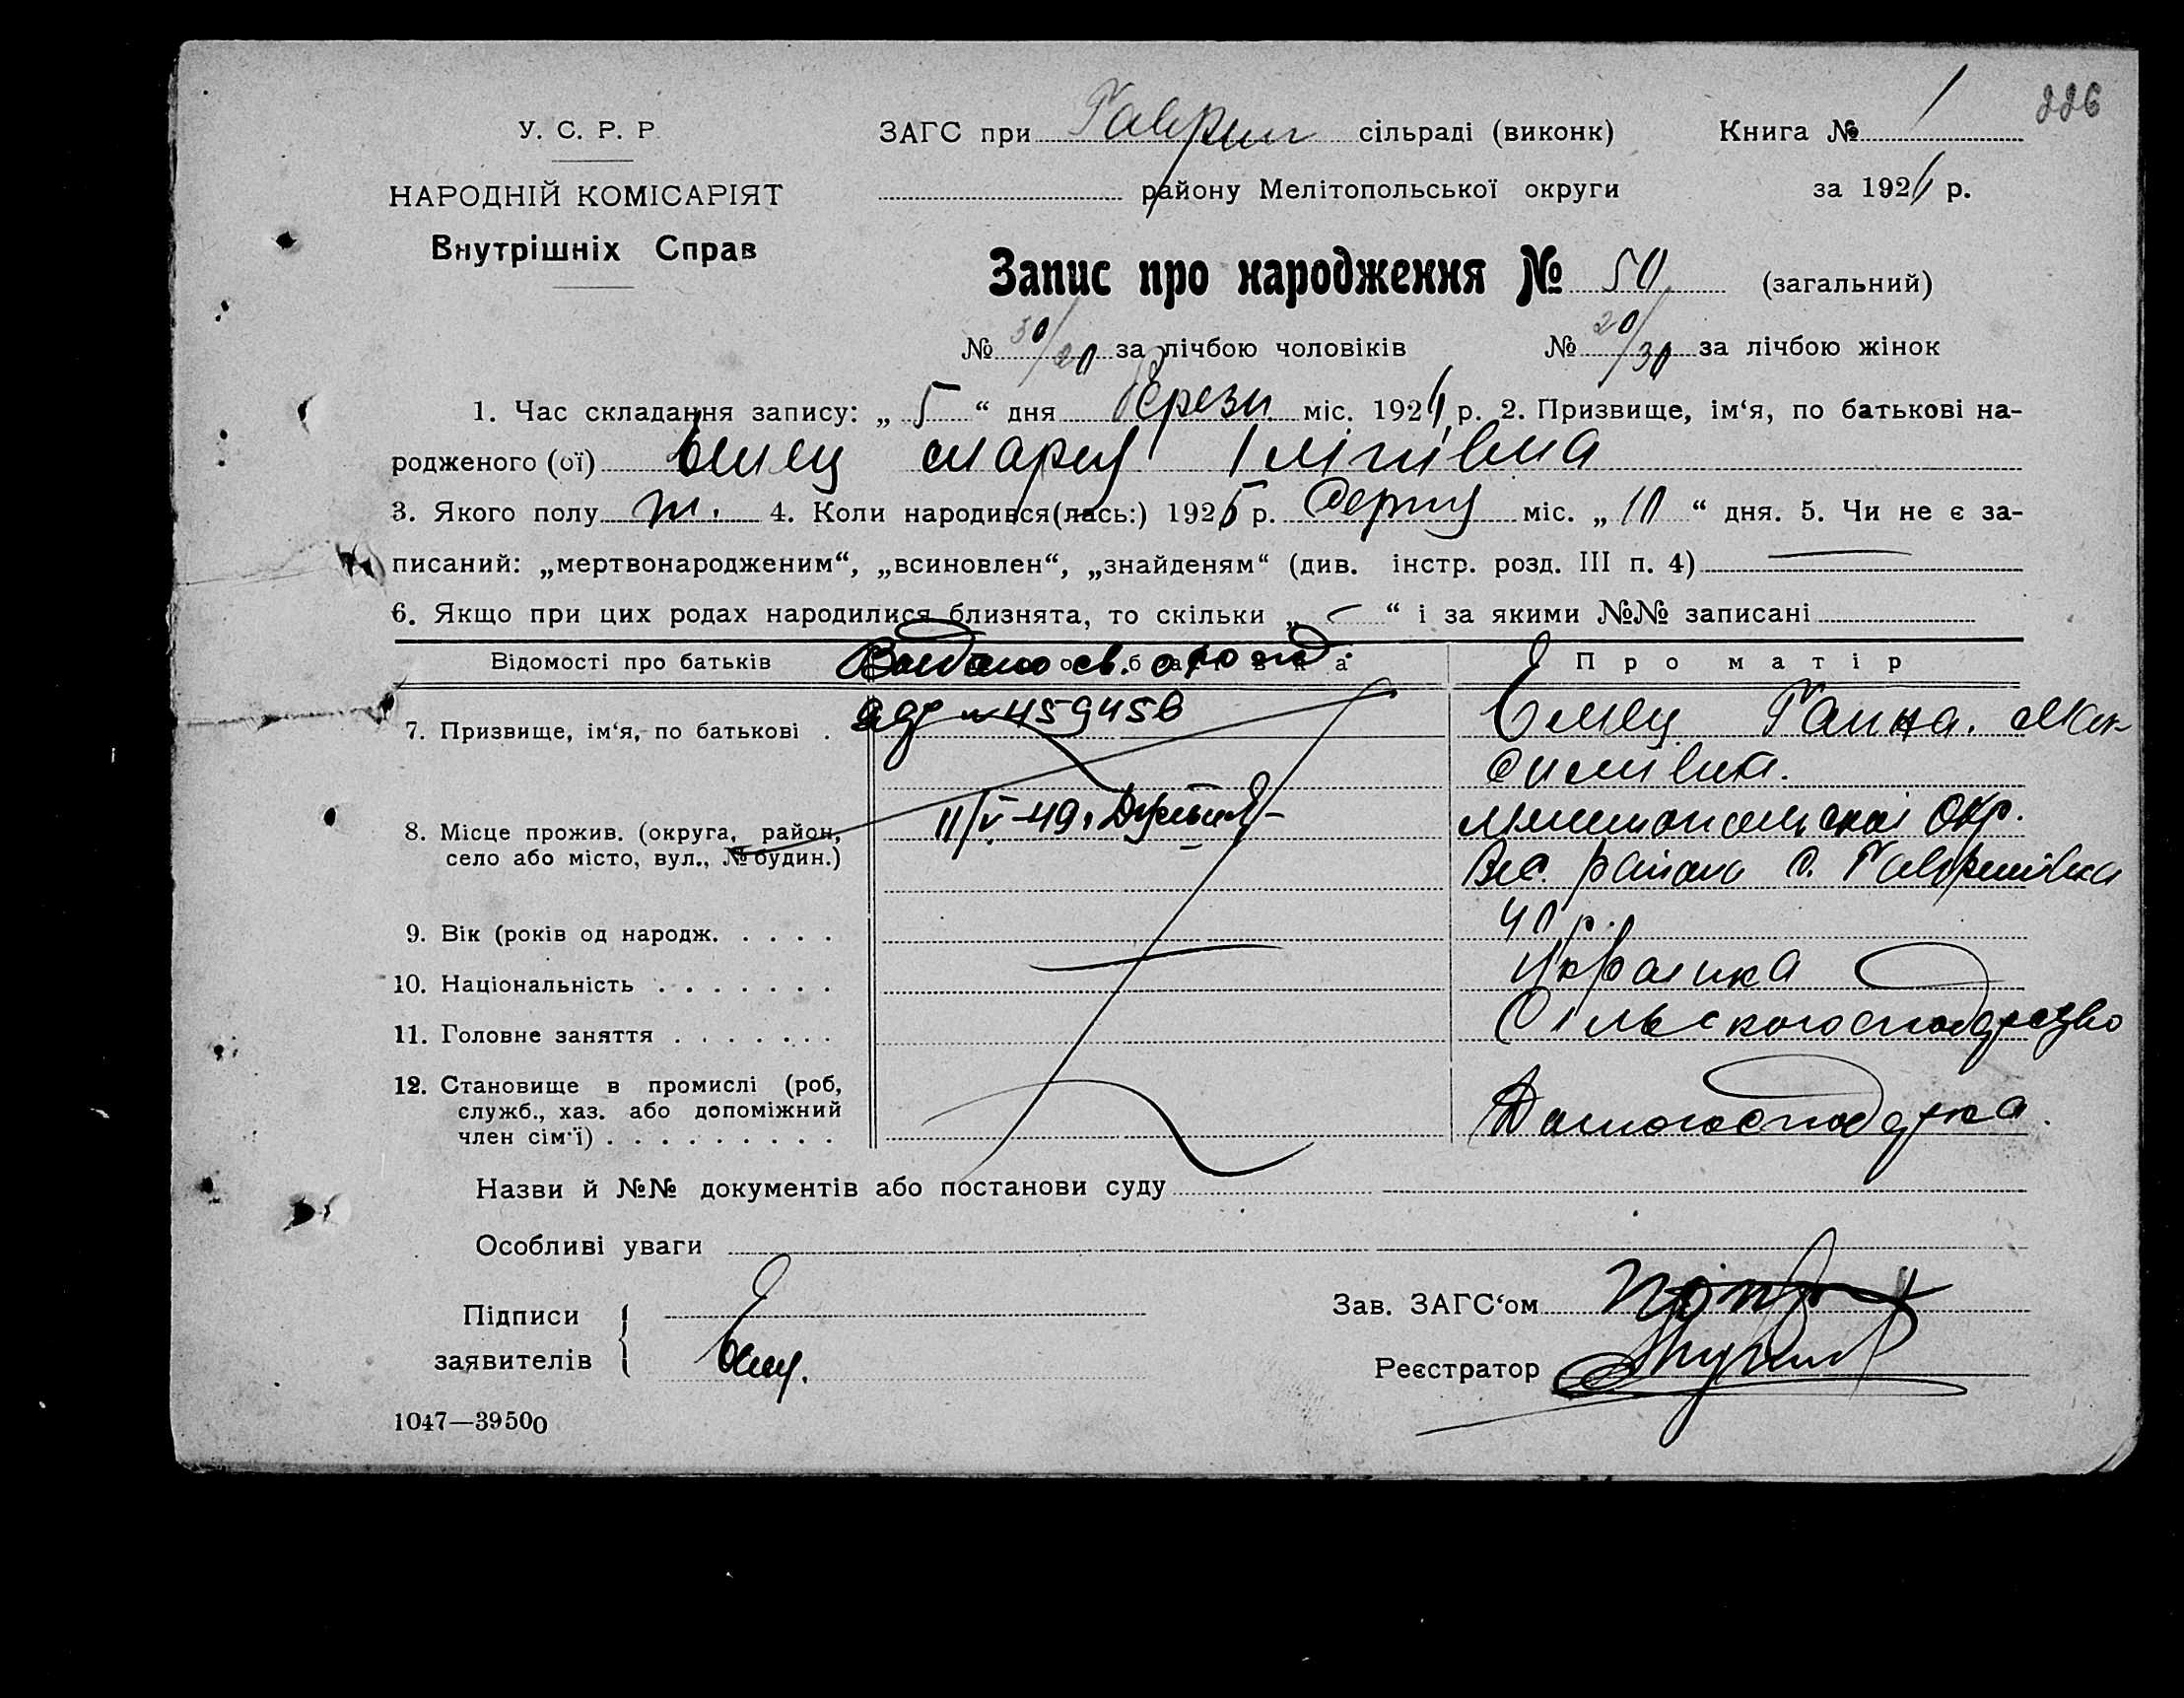 226
У. С. Р. Р
ЗАГС при Гаврил сільраді (виконк) Книга № 1
НАРОДНІЙ КОМІСАРІЯТ
району Мелітопольської округи за 192 р.
Внутрішніх Справ
Запис про народження № 50 (загальний)
№ 30/20 за лічбою чоловіків № 20/30 за лічбою жінок
1. Час складання запису: „ 5 “ дня Березн міс. 192 р. 2. Призвище, ім‘я, по батькові на-
родженого (ої) Ємец Мария
3. Якого полу ж. 4. Коли народився(лась:) 1925 р. Серпня міс. „ 10 “ дня. 5. Чи не є за-
писаний: „мертвонародженим“, „всиновлен“, „знайденям“ (див. інстр. розд. III п. 4)
6. Якщо при цих родах народилися близнята, то скільки „ “ і за якими №№ записані
Відомості про батьків Про батька Про матір
Выдано св. о рожд.
№ 459456
7. Призвище, ім‘я, по батькові . Ємец Ганна. Мак
симівна.
11/V-49г
8. Місце прожив. (округа, район, село або місто, вул., № будин.) Мелитопольскоі Окр.
Вес. району с. Гаврилівка
9. Вік (років од народж. . . . . 40 р.
10. Національність . . . . . . . Украінка
11. Головне заняття . . . . . . . Сільскогосподарство
12. Становище в промислі (роб, служб., хаз. або допоміжний член сім‘ї) . . . . . . . . . Домогосподарка.
Назви й №№ документів або постанови суду
Особливі уваги
Підписи
заявителів Ємец.
Зав. ЗАГС‘ом
Реєстратор
1047—39500